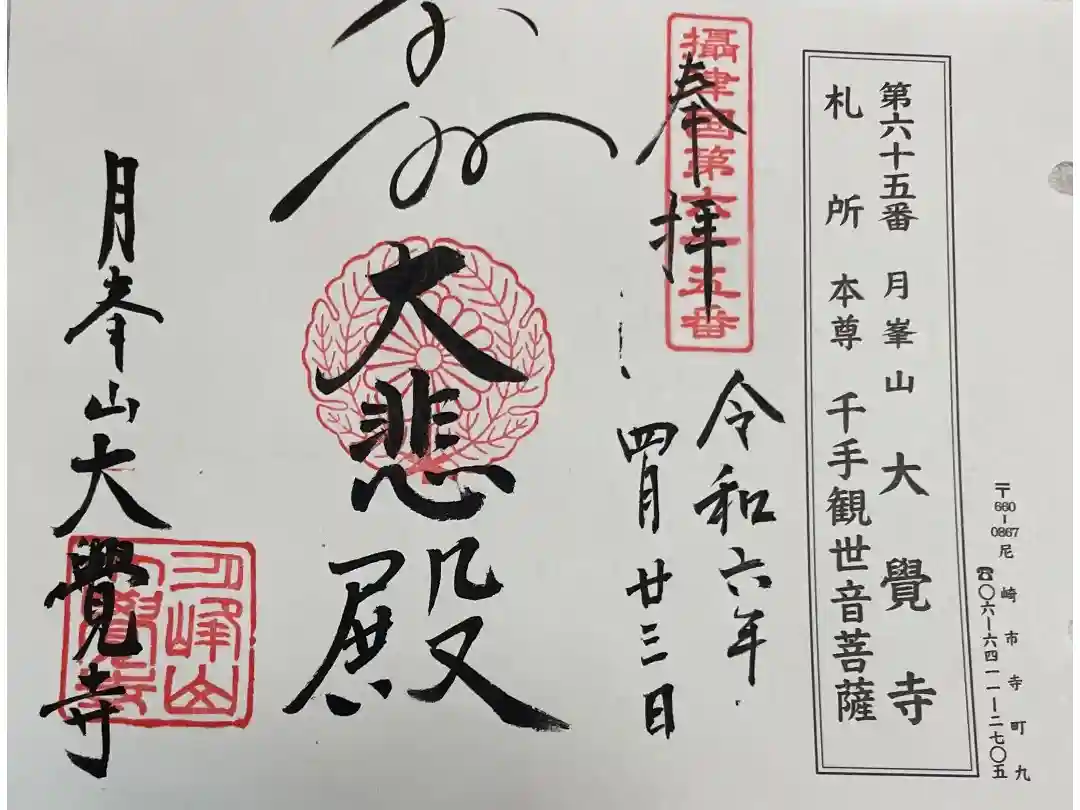 第六十五番 月峯山 大覺寺
札所 本尊 千手観世音菩薩
〒660-0867 尼崎市寺町九
☎〇六-六四一一-二七〇五
攝津国第六十五番
奉拝
令和六年
四月廿三日
大悲殿
月峯山大覺寺
月峰山
大覺寺